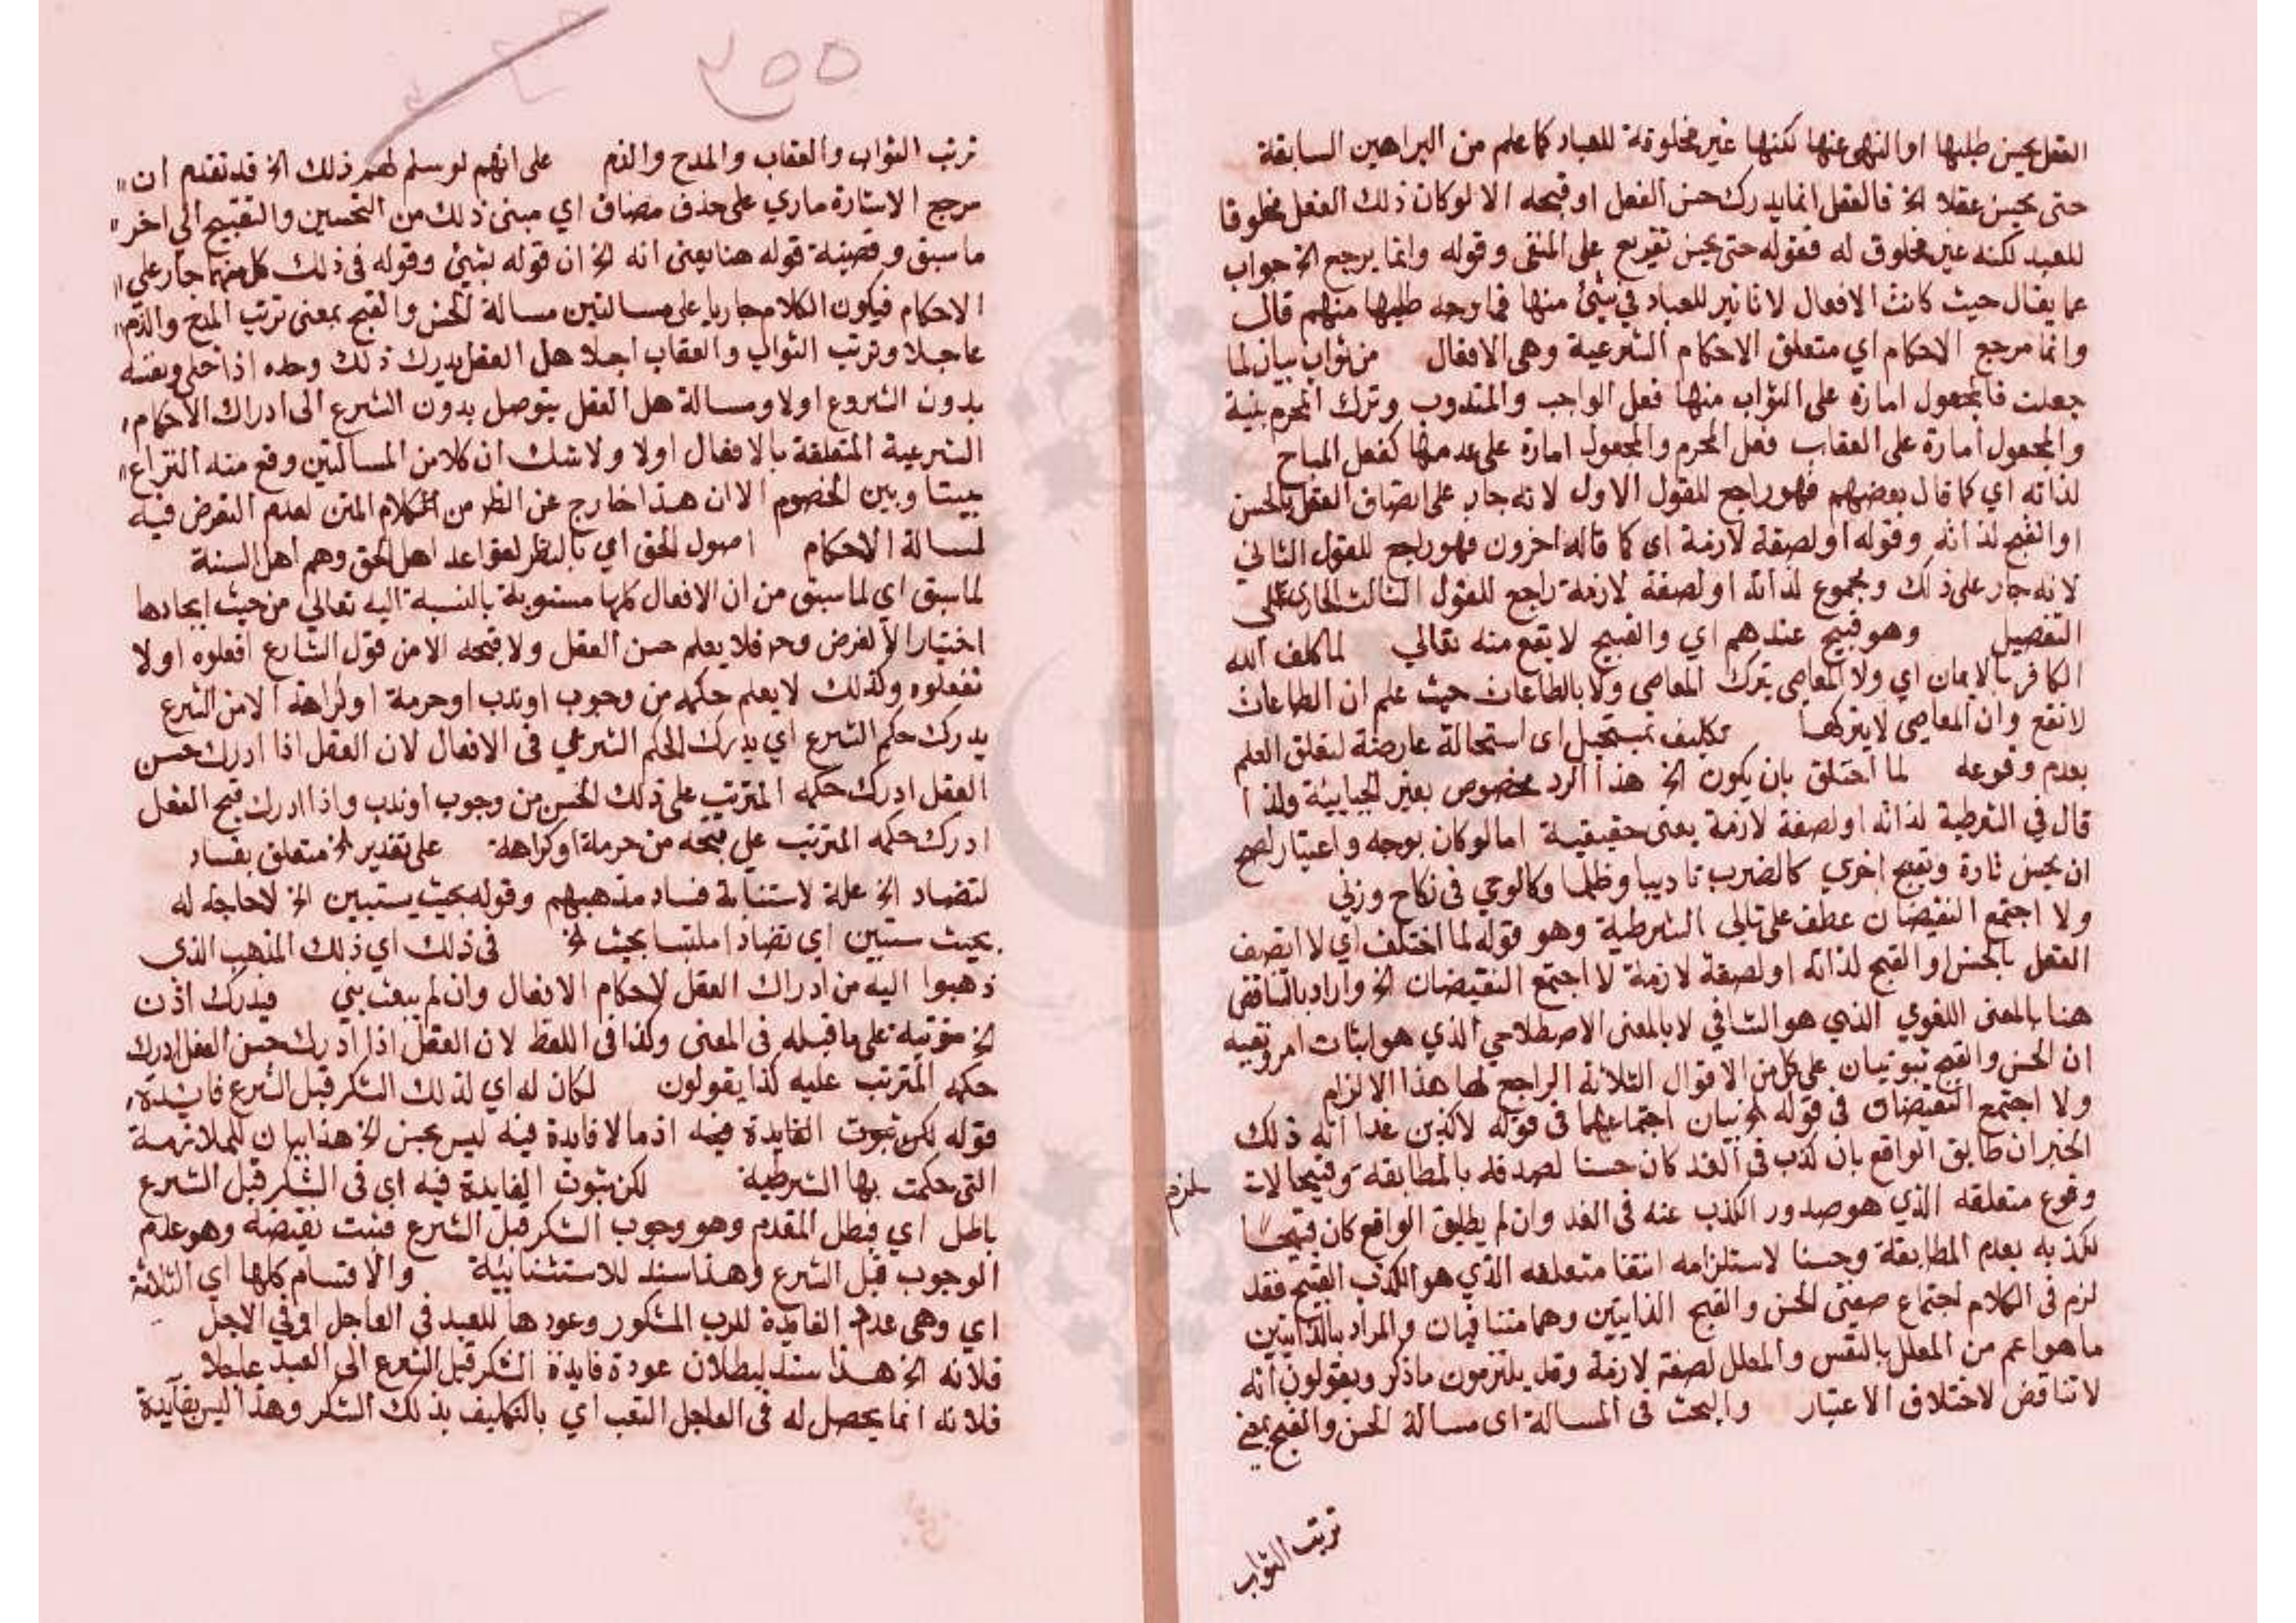 العقل يحسن طلبها او النهى عنها لكنها غير مخلوقة للعباد كما علم من البراهين السابقة
حتى يحسن عقلا الخ فالعقل انما يدرك حسن الفعل او قبحه الا لو كان ذلك الفعل مخلوقا
للعبد لكنه غير مخلوق له فقوله حتى يحسن تفريع على المنفى وقوله وانما يرجع الخ جواب
عما يقال حيث كانت الافعال لا تاثير للعباد في شئ منها فما وجه طلبها منهم قال
وانما مرجع الاحكام اي متعلق الاحكام الشرعية وهى الافعال من ثواب بيان لما
جعلت فالمجعول امارة على الثواب منها فعل الواجب والمندوب وترك المحرم بنية
والمجعول امارة على العقاب فعل المحرم والمجعول امارة على عدمها كفعل المباح
لذاته اي كما قال بعضهم فهو راجع للقول الاول لانه جار على اتصاف الفعل بالحسن
او القبح لذاته وقوله او لصفة لازمة اى كما قاله اخرون فهو راجع للقول الثاني
لانه جار على ذلك ومجموع لذاته او لصفة لازمة راجع للقول الثالث الجارى على
التفصيل وهو قبيح عندهم اي والقبيح لا يقع منه تعالي لما كلف الله
الكافر بالايمان اي ولا العاصي بترك المعاصي ولا بالطاعات حيث علم ان الطاعات
لا تقع وان المعاصي لا يتركها تكليف بمستحيل اى استحالة عارضة لتعلق العلم
بعدم وقوعه لما اختلق بان يكون الخ هذا الرد مخصوص بغير الجبايية ولذا
قال في الشرطية لذاته او لصفة لازمة يعنى حقيقية اما لو كان بوجه واعتبار لصح
ان يحسن تارة ويقبح اخري كالضرب تاديبا وظلما وكالوطي في نكاح وزني
ولا اجتمع النقيضان عطف على تالي الشرطية وهو قوله لما اختلف اي لا اتصف
الفعل بالحسن او القبح لذاته او لصفة لازمة لا اجتمع النقيضان الخ واراد بالتناقض
هنا بالمعنى اللغوي الذي هو التنافي لا بالمعنى الاصطلاحي الذي هو اثبات امر ونفيه
ان الحسن والقبح ثبوتيان على كل من الاقوال الثلاثة الراجع لها هذا الالزام
ولا اجتمع النقيضان في قوله الخ بيان اجتماعهما في قوله لاكذبن غدا انه ذلك
الخبر ان طابق الواقع بان كذب في الغد كان حسنا لصدقه بالمطابقة وقبيحا لات
لزم
وقوع متعلقه الذي هو صدور الكذب عنه في الغد وان لم يطابق الواقع كان قبيحا
لكذبه بعدم المطابقة وحسنا لاستلزامه انتفا متعلقه الذي هو الكذب القبيح فقد
لزم في الكلام اجتماع صفتى الحسن والقبح الذاتيتين وهما متنافيان والمراد بالذاتيتين
ما هو اعم من المعلل بالنفس والمعلل لصفة لازمة وقد يلتزمون ما ذكر ويقولون انه
لا تناقض لاختلاف الاعتبار والبحث في المسالة اى مسالة الحسن والقبح بمعنى
ترتب الثواب
٢٥٥
ترتب الثواب والعقاب والمدح والذم على انهم لو سلم لهم ذلك الخ قد تقدم ان
مرجع الاشارة ماري على حذف مضاف اي مبنى ذلك من التحسين والتقبيح الي اخر
ما سبق وقضية قوله هنا يعنى انه الخ ان قوله بشئ وقوله في ذلك كل منهما جار على
الاحكام فيكون الكلام جاريا على مسالتين مسالة الحسن والقبح بمعنى ترتب المدح والذم
عاجلا وترتب الثواب والعقاب اجلا هل العقل يدرك ذلك وحده اذا خلي ونفسه
بدون الشروع اولا ومسالة هل العقل يتوصل بدون الشرع الى ادراك الاحكام
الشرعية المتعلقة بالافعال اولا ولا شك ان كلا من المسالتين وقع منه النزاع
بيننا وبين الخصوم الا ان هذا خارج عن النظر من الكلام المتن لعدم التعرض فيه
لمسالة الاحكام اصول الحق اي بالنظر لقواعد اهل الحق وهم اهل السنة
لما سبق اي لما سبق من ان الافعال كلها مستوية بالنسبة اليه تعالي من حيث ايجادها
اختيارا لا لغرض وح فلا يعلم حسن العقل ولا قبحه الا من قول الشارع افعلوه اولا
تفعلوه وكذلك لا يعلم حكمه من وجوب او ندب او حرمة او كراهة الا من الشرع
يدرك حكم الشرع اي يدرك الحكم الشرعي في الافعال لان العقل اذا ادرك حسن
العقل ادرك حكمه المترتب على ذلك الحسن من وجوب او ندب واذا ادرك قبح الفعل
ادرك حكمه المترتب على قبحه من حرمة او كراهة على تقدير الخ متعلق بفساد
لتضاد الخ علة لاستبانة فساد مذهبهم وقوله بحيث يستبين الخ لا حاجة له
بحيث ستبين اي تضادا ملتبسا بحيث الخ في ذلك اي ذلك المذهب الذى
ذهبوا اليه من ادراك العقل لاحكام الافعال وان لم يبعث نبي فيدرك اذن
الخ مرتبة على ما قبله في المعنى وكذا في اللفظ لان العقل اذا ادرك حسن الفعل ادرك
حكمه المترتب عليه كذا يقولون لكان له اي لذلك الشكر قبل الشرع فايدة
قوله لكن ثبوت الفايدة فيه اذ ما لا فايدة فيه ليس بحسن الخ هذا بيان للملازمة
التى حكمت بها الشرطية لكن ثبوت الفايدة فيه اي في الشكر قبل الشرع
باطل اي فبطل المقدم وهو وجوب الشكر قبل الشرع فيثبت نقيضه وهو عدم
الوجوب قبل الشرع وهذا سند للاستثنائية والاقسام كلها اي الثلاثة
اي وهى عدم الفايدة للرب المشكور وعودها للعبد في العاجل او في الاجل
فلانه الخ هذا سند لبطلان عودة فايدة الشكر قبل الشرع الى العبد عاجلا
فلانه انما يحصل له في العاجل التعب اي بالتكليف بذلك الشكر وهذا ليس بفايدة